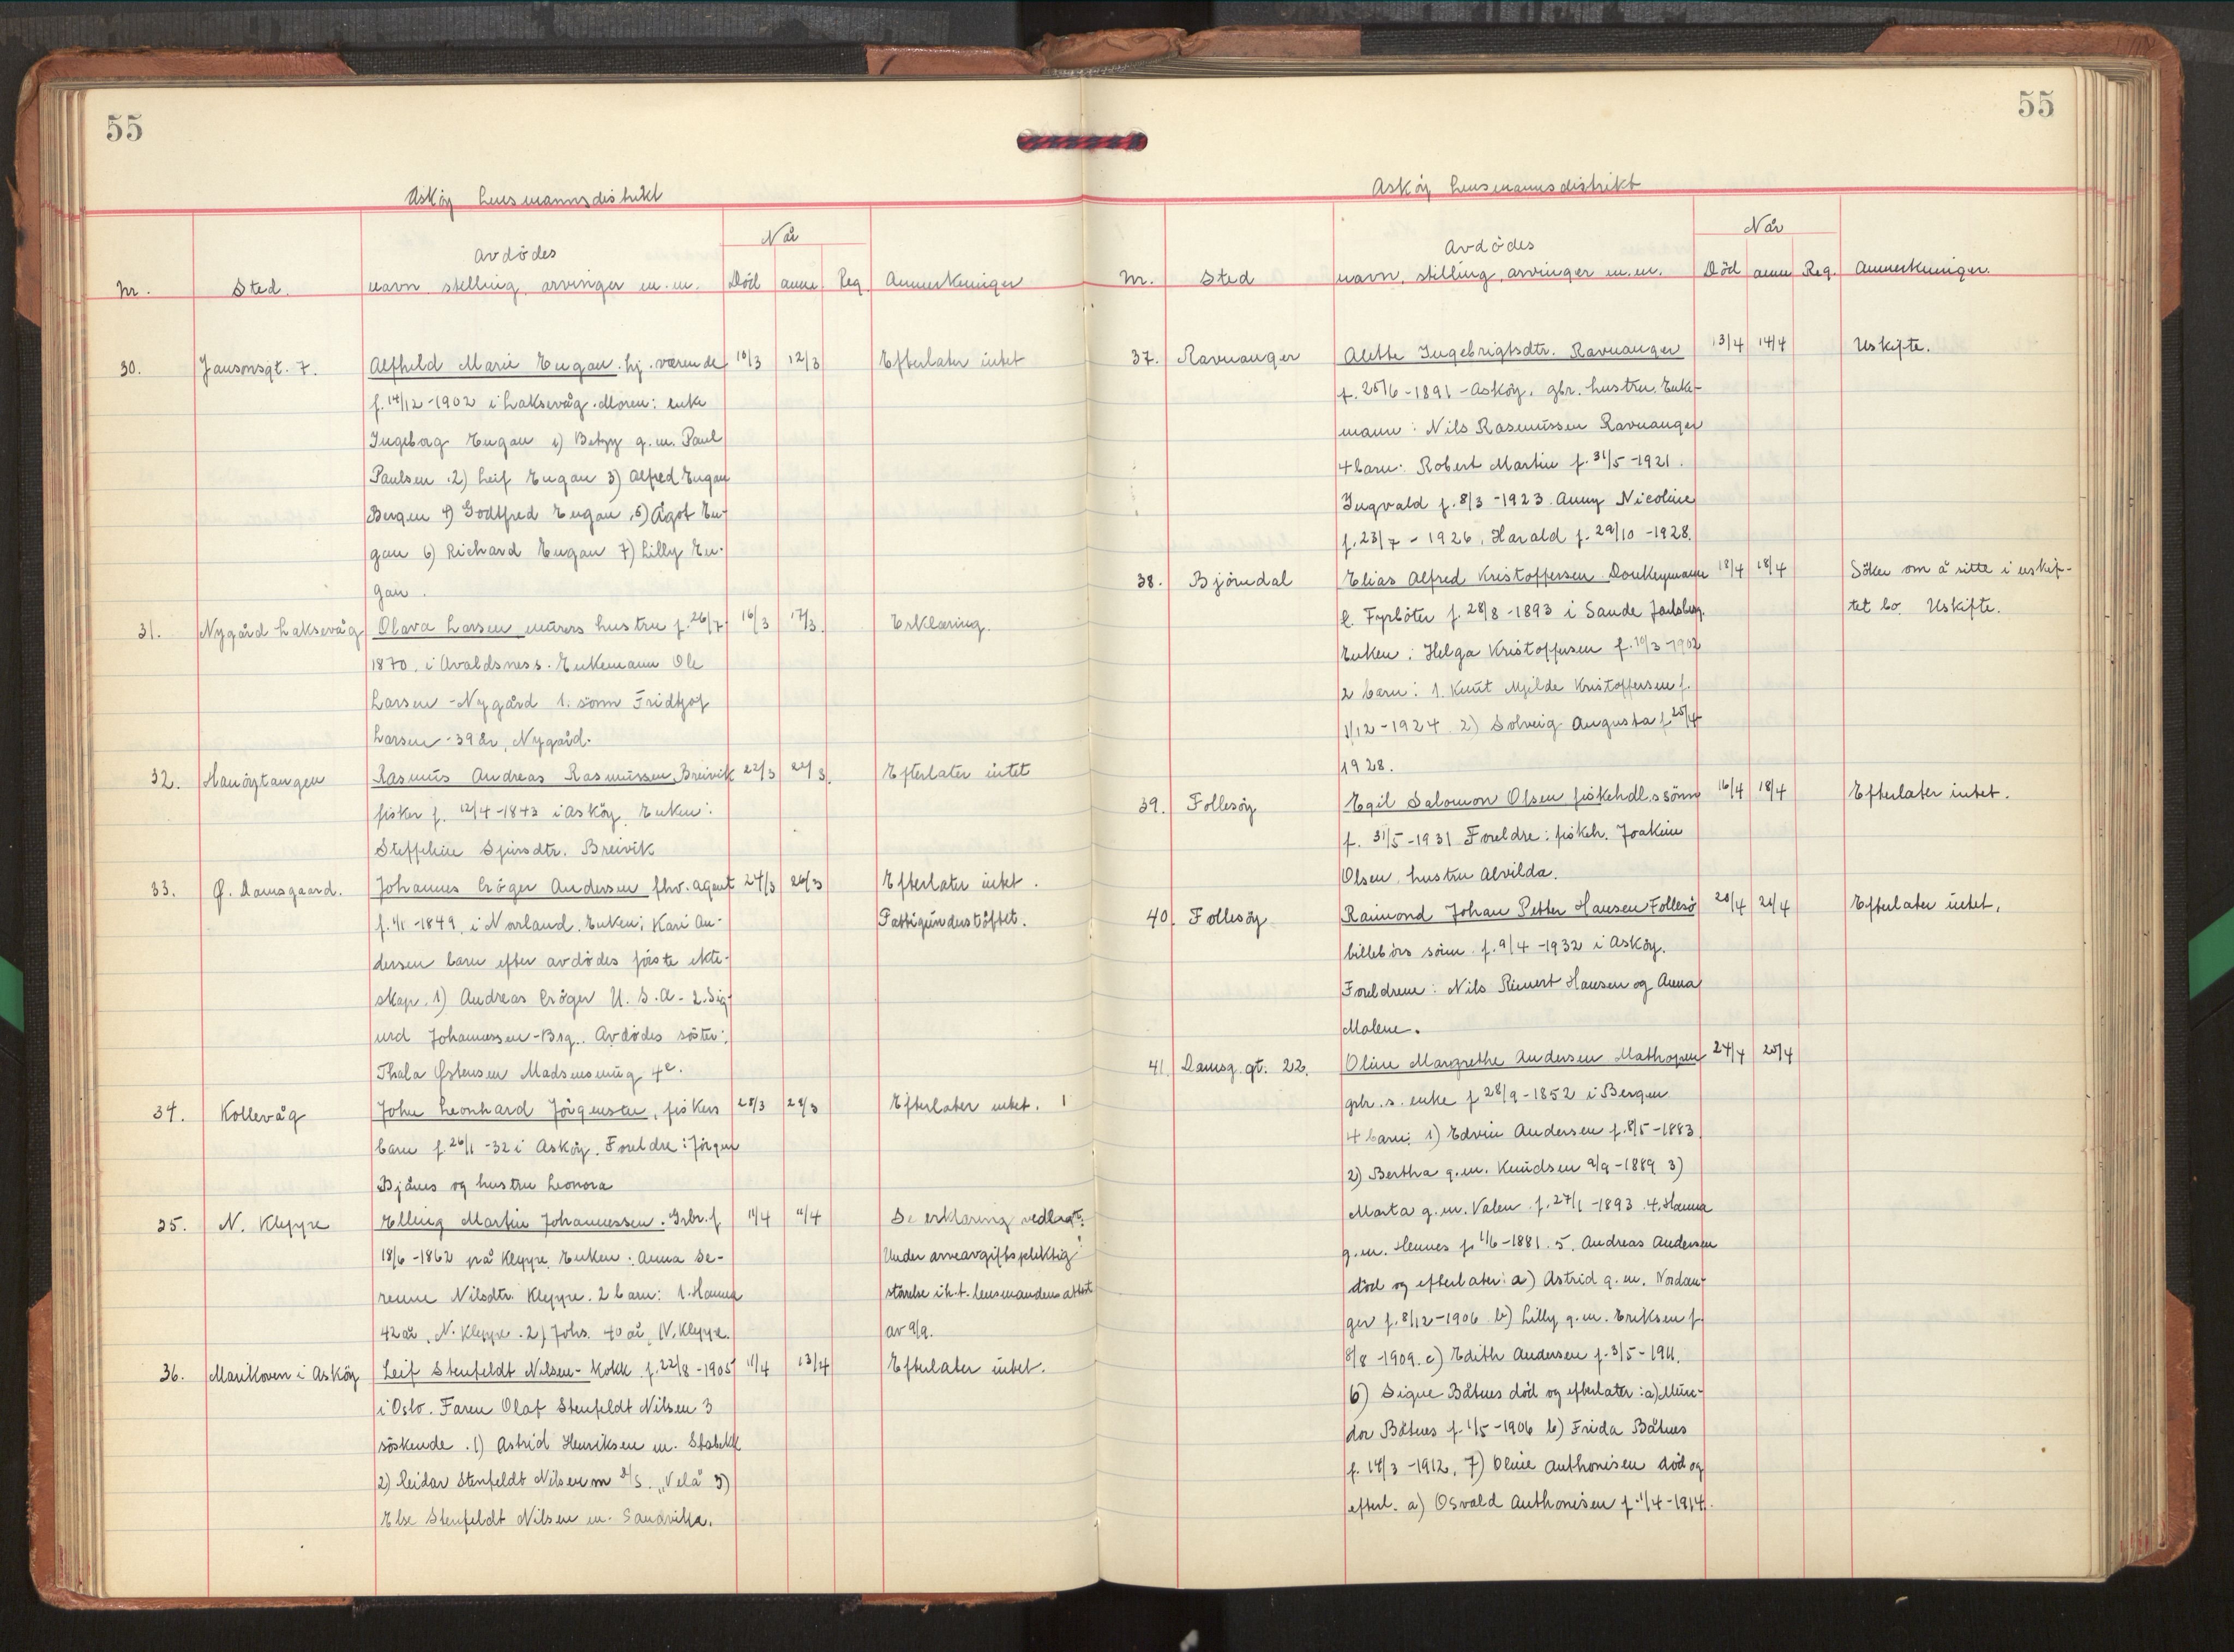 55
Asköy lensmannsdistrikt
Når
Avdödes
Nr. Sted. navn stelling, arvinger m.m. Död anm. Reg. Anmerkninger
30. Jansonsgt. 7. Alfhild Marie Eugan. hj. værende 10/3 12/3 Efterlater intet
f. 14/12-1902 i Laksevåg. Moren: enke
Ingeborg Eugan 1) Betzy g.m. Paul
Paulsen. 2) Leif Eugan 3) Alfred Eugan
Bergen 4) Godtfred Eugan, 5) Ågot Eu-
gan 6) Richard Eugan 7) Lilly Eu-
gan.
31. Nygård Laksevåg Olava Larsen murers hustru f. 26/7 16/3 17/3. Erklæring.
1870. i Avaldsness. Enkemann Ole
Larsen - Nygård 1. sönn Fridtjof
Larsen - 39 år, Nygård.
32. Hanöytangen Rasmus Andreas Rasmussen, Breivik 22/3 22/3. Efterlater intet
fisker f. 12/4-1843 i Asköy. Enken:
Steffeline Sjursdtr. Breivik
33. Ø. Damsgaard. Johannes Cröger Andersen fhv. agent 24/3 26/3 Efterlater intet.
f. 4/1-1849. i Norland. Enken: Kari An- Fattigunderstöttet.
dersen barn efter avdödes förste ekte-
skap. 1) Andreas Cröger U.S.A. - 2. Sig-
urd Johannessen - Brg.. Avdödes söster:
Thala Østensen Madsensmug 4c.
34. Kollevåg John Leonhard Jörgensen, fiskers 28/3 28/3 Efterlater intet.
barn f. 26/1-32 i Asköy. Foreldre: Jörgen
Bjånes og hustru Leonora
35. N. Kleppe Elling Martin Johannessen. Grbr. f. 11/4 11/4 Se erklæring vedlagt.
18/6-1862 på Kleppe. Enken: Anna Se- Under arveavgiftspliktig
renne Nilsdtr. Kleppe. 2 barn: 1. Hanna störrelse i h.t. lensmandens attest
42 år, N. Kleppe. 2) Johs. 40 år, N. Kleppe. av 9/9.
36. Marikoven i Asköy Leif Stenfeldt Nilsen - Kokk f. 22/8-1905 11/4 13/4 Efterlater intet.
i Oslo. Faren Olaf Stenfeldt Nilsen 3
söskende. 1) Astrid Henriksen m. Stabekk
2) Reidar Stenfeldt Nilsen m D/S. "Vela" 3)
Else Stenfeldt Nilsen m. Sandvika.
55
Asköy lensmannsdistrikt
Når
Avdödes
Nr. Sted navn, stilling, arvinger m.m. Död anm Reg. Anmerkninger.
37. Ravnanger Alette Ingebrigtsdtr. Ravnanger 13/4 14/4 Uskifte.
f. 25/6-1891 - Asköy. gbr. hustru. Enke-
mann: Nils Rasmussen Ravnanger
4 barn: Robert Martin f. 31/5-1921.
Ingvald f. 8/3-1923. Anny Nicoline
f. 23/7-1926, Harald f. 29/10-1928.
38. Björndal Elias Alfred Kristoffersen Donkeymann 18/4 18/4 Söker om å sitte i uskif-
e. Fyrböter f. 28/8-1893 i Sande Jarlsberg. tet bo. Uskifte.
Enken: Helga Kristoffersen f. 10/3-1902
2 barn: 1. Knut Mjelde Kristoffersen f.
1/12-1924. 2) Solveig Augusta f. 25/4
1928.
39. Follesöy Egil Salomon Olsen fiskehdl.s sönn 16/4 18/4 Efterlater intet.
f. 31/5-1931 Foreldre: fiskeh. Joakim
Olsen, hustru Alvilda.
40. Follesöy Raimond Johan Petter Hansen Follesö 20/4 21/4 Efterlater intet.
billebörs sönn. f. 9/4-1932 i Asköy.
Foreldrene: Nils Rienert Hansen og Anna
Malene.
41. Damsg. gt. 22. Oline Margrethe Andersen Mathopen 24/4 25/4
gbr. s. enke f 28/9-1852 i Bergen
4 barn: 1) Edvin Andersen f. 8/5-1883
2) Bertha g.m. Knudsen 9/9-1889 3)
Marta g.m. Valen f. 27/1-1893. 4. Hanna
g.m. Hennes f. 11/6-1881. 5. Andreas Andersen
död og efterlater: a) Astrid g.m. Nordan-
ger f. 8/12-1906 b) Lilly g.m. Eriksen f.
8/8-1909. c) Edith Andersen f. 3/5-1911.
6) Signe Båtnes död og efterlater: a) Mun-
dor Båtnes f. 1/5-1906 b) Frida Båtnes
f. 14/3-1912. 7) Oline Anthonisen död og
efterl. a) Osvald Anthonisen f. 1/4-1914.